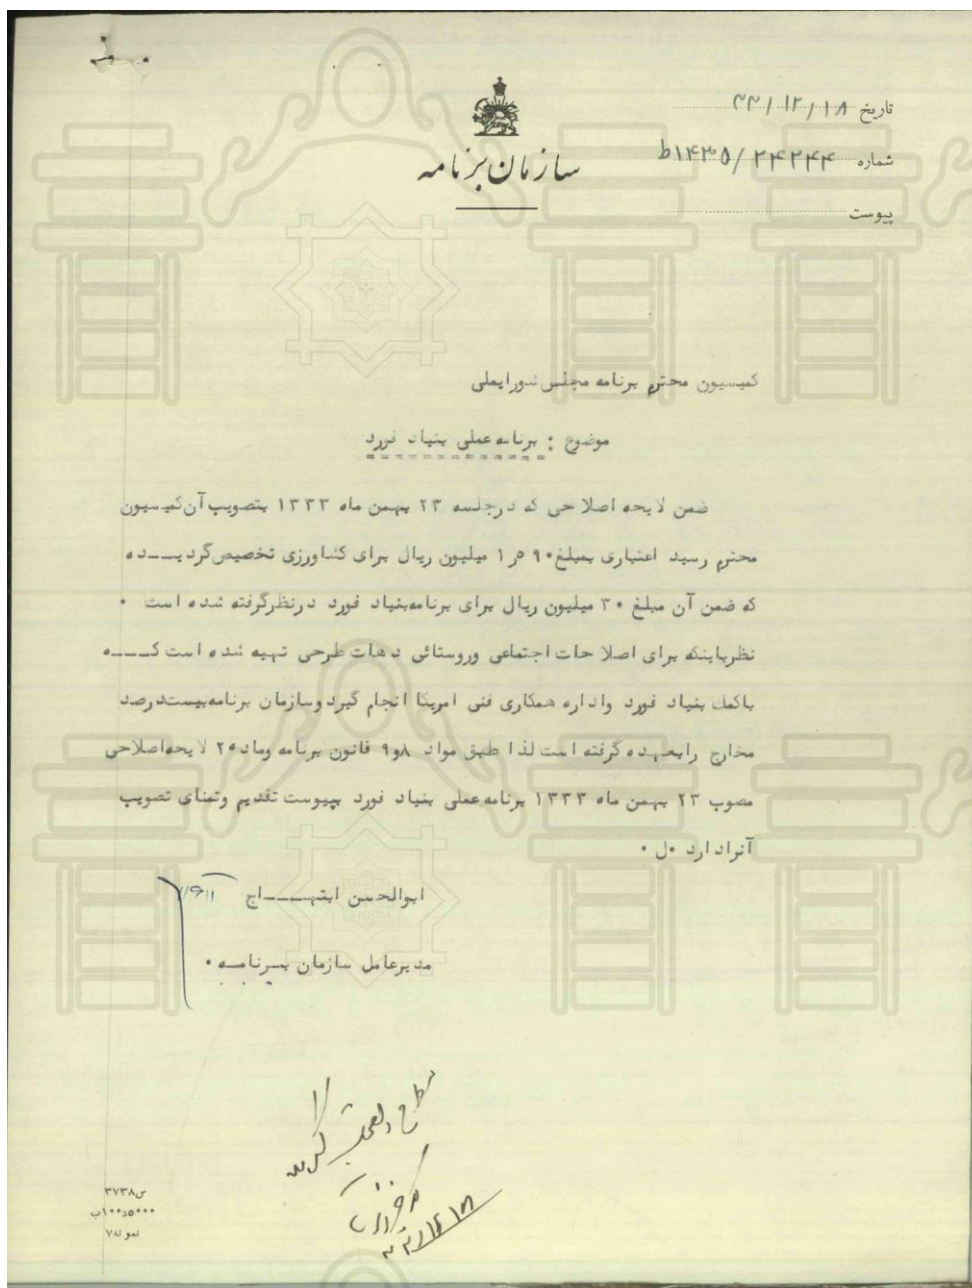 تاریخ ۳۳/۱۲/۱۸
شماره ۲۴۲۴۴/۱۴۳۵ط
پیوست
سازمان برنامه
کمیسیون محترم برنامه مجلس شورایملی
موضوع : برنامه عملی بنیاد فورد
ضمن لایحه اصلاحی که درجلسه ۲۳ بهمن ماه ۱۳۳۳ بتصویب آن کمیسیون
محترم رسید اعتباری بمبلغ ۱٫۵۹۰ میلیون ریال برای کشاورزی تخصیص گردیـــده
که ضمن آن مبلغ ۳۰ میلیون ریال برای برنامه بنیاد فورد درنظرگرفته شده است ۰
نظرباینکه برای اصلاحات اجتماعی وروستائی دهات طرحی تهیه شده است کـــه
باکمک بنیاد فورد واداره همکاری فنی امریکا انجام گیرد وسازمان برنامه بیست درصد
مخارج رابعهده گرفته است لذا طبق مواد ۸و۹ قانون برنامه وماده ۲ لایحه اصلاحی
مصوب ۲۳ بهمن ماه ۱۳۳۳ برنامه عملی بنیاد فورد بپیوست تقدیم وتمنای تصویب
آنرادارد ۰ل ۰
ابوالحسن ابتهـــاج
مدیرعامل سازمان بـرنامـه ۰
مطرح و تصویب گردید
۳۳/۱۲/۱۸
س۳۷۳۸
۱۰۰د۵۰۰۰ب
نمونه ۷۸